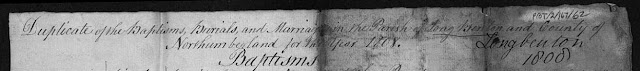 PBT/2/167/62
Duplicate of the Baptisms, Burials, and Marriages in the Parish of Long Benton and County of
Northumberland for the Year 1808.
Longbenton
1808
Baptisms